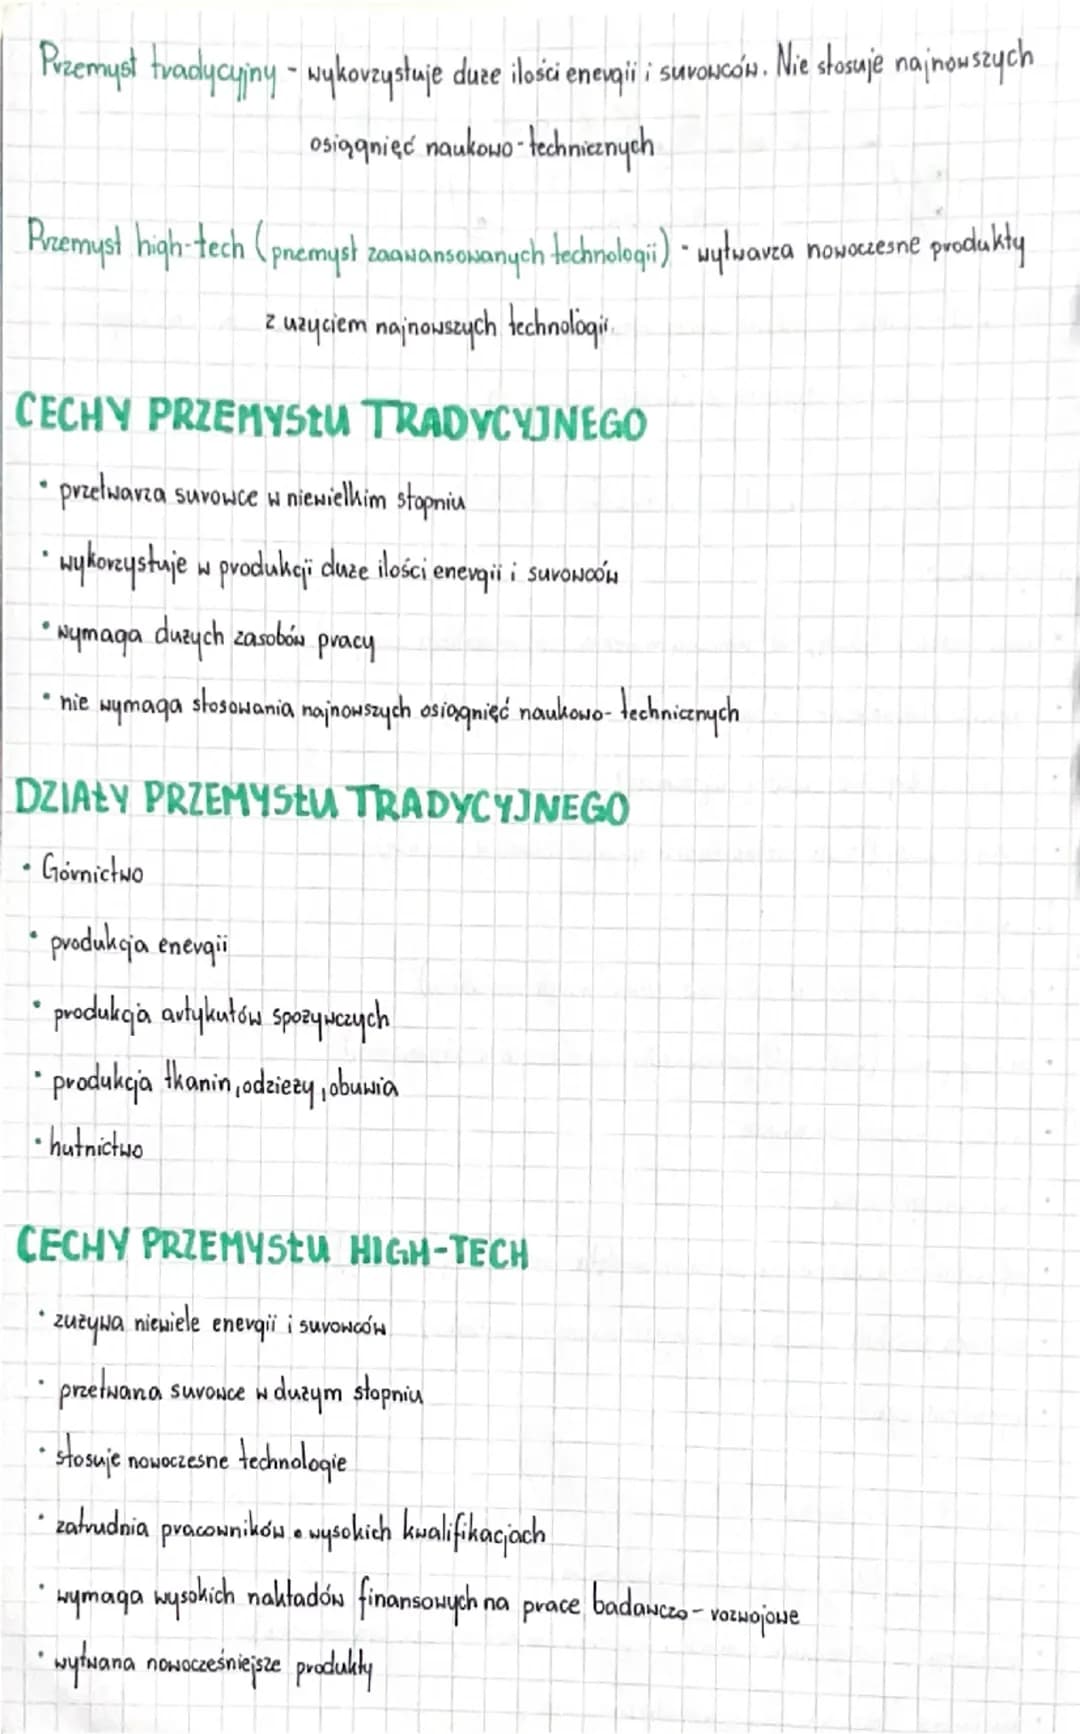 Przemysł tradycyjny - wykorzystuje duże ilości energii i surowców. Nie stosuje najnowszych
osiągnięć naukowo-technicznych
Przemysł high-tech (przemysł zaawansowanych technologii) - wytwarza nowoczesne produkty
z użyciem najnowszych technologii.
CECHY PRZEMYSŁU TRADYCYJNEGO
• przetwarza surowce w niewielkim stopniu
• wykorzystuje w produkcji duże ilości energii i surowców
• wymaga dużych zasobów pracy
• nie wymaga stosowania najnowszych osiągnięć naukowo-technicznych
DZIAŁY PRZEMYSŁU TRADYCYJNEGO
• Górnictwo
• produkcja energii
• produkcja artykułów spożywczych
• produkcja tkanin, odzieży, obuwia
• hutnictwo
CECHY PRZEMYSŁU HIGH-TECH
• zużywa niewiele energii i surowców
• przetwarza surowce w dużym stopniu
• stosuje nowoczesne technologie
• zatrudnia pracowników o wysokich kwalifikacjach
• wymaga wysokich nakładów finansowych na prace badawczo-rozwojowe
• wytwarza nowocześniejsze produkty